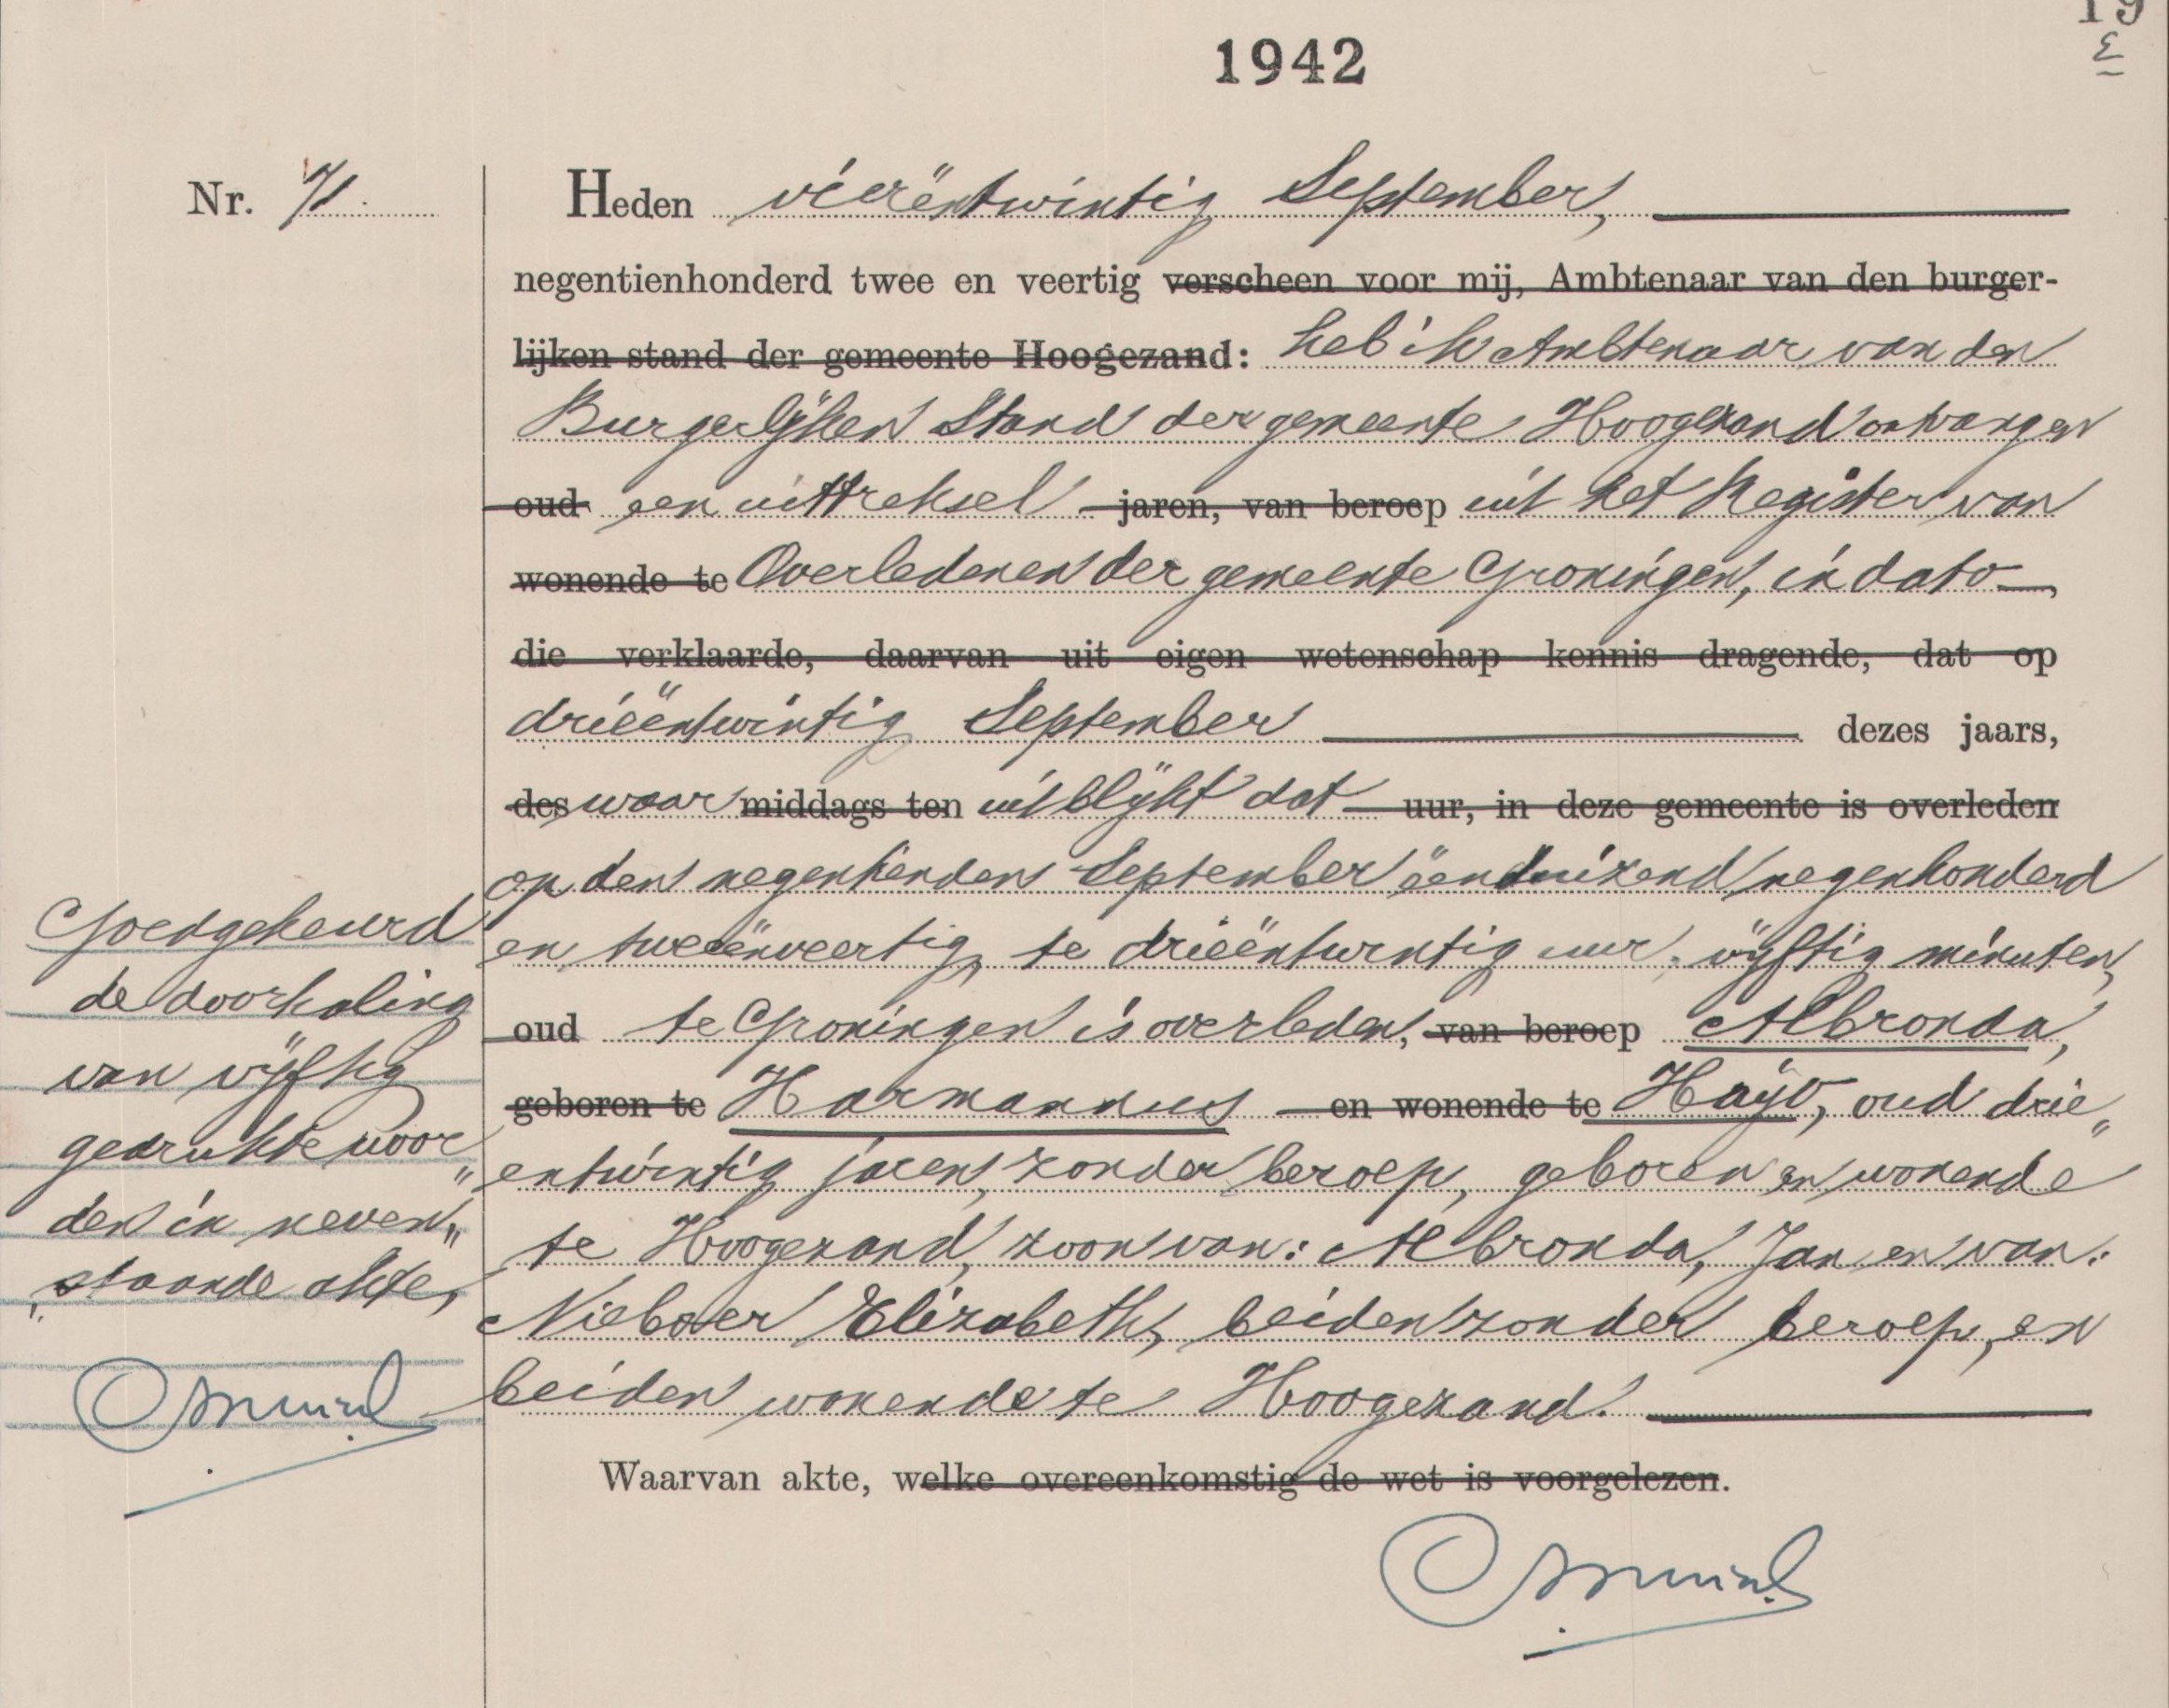 19
1942
Nr. 71.
Heden vierëntwintig September,
negentienhonderd twee en veertig verscheen voor mij, Ambtenaar van den burger-
lijken stand der gemeente Hoogezand: heb ik Ambtenaar van den
Burgerlijken Stand der gemeente Hoogezand ontvangen
oud een uittreksel jaren, van beroep uit het Register van
wonende te Overledenen der gemeente Groningen, in dato
die verklaarde, daarvan uit eigen wetenschap kennis dragende, dat op
drieëntwintig September dezes jaars,
des waar middags ten uit blijkt dat uur, in deze gemeente is overleden
op den negentienden September ëenduizend negenhonderd
en tweeënveertig, te drieëntwintig uur, vijftig minuten,
oud te Groningen is overleden, van beroep Albronda,
geboren te Harmannus en wonende te Hayo, oud drie„
„entwintig jaren, zonder beroep, geboren en wonende
te Hoogezand, zoon van: Albronda, Jan en van:
Nieboer Elizabeth, beiden zonder beroep, en
beiden wonende te Hoogezand.
Waarvan akte, welke overeenkomstig de wet is voorgelezen.
Goedgekeurd
de doorhaling
van vijftig
gedrukte woor
den in neven„
„staande akte,